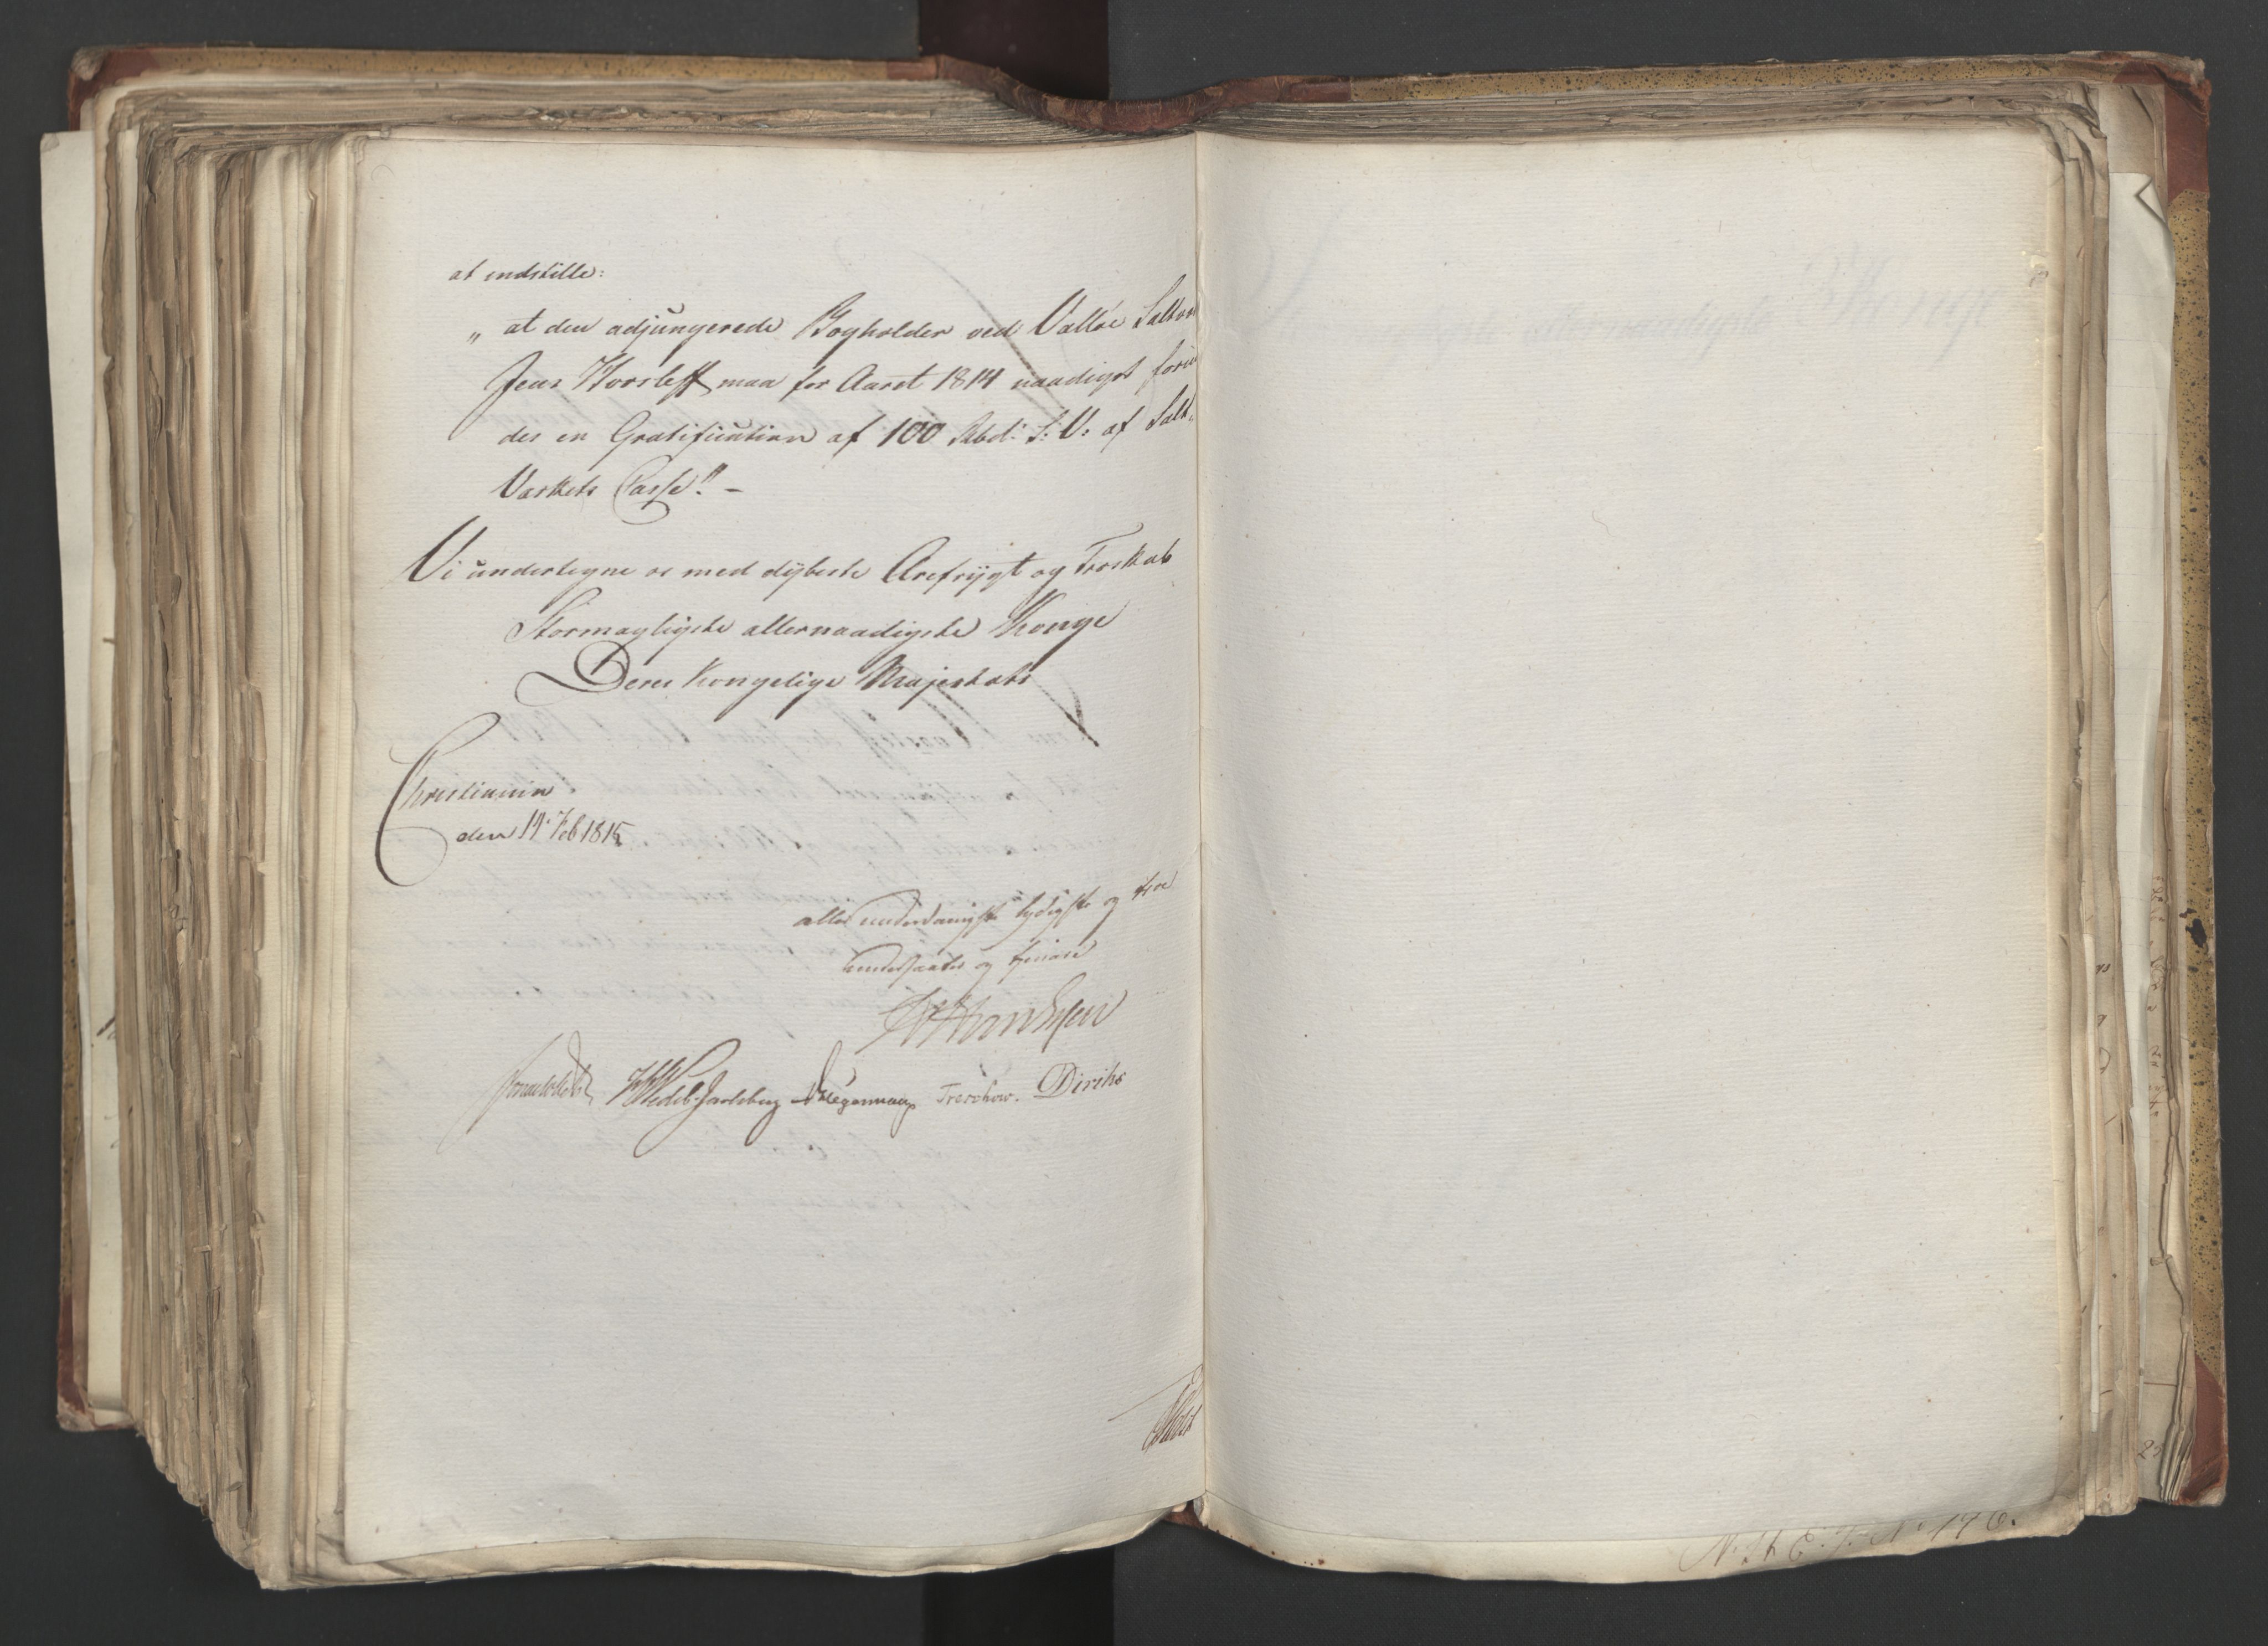 at indstille:
„ at den adjungerede Bogholder ved Valløe Saltv
Jens Horsleff maa for Aaret 1814 naadigst forun
des en Gratification af 100 Rbd: S: V: af Salt-
Værkets Casse." -
Vi undertegne os med dybeste Ærefrygt og Troskab
Stormægtigste allernaadigste Konge
Deres Kongelige Majestæts
Christiania
den 14. Feb 1815
allerunderdanigste lydigste og troe
undersaatter og tjenere
Sommerhielm
HWedel-Jarlsberg
Treschow. Diriks
Holst